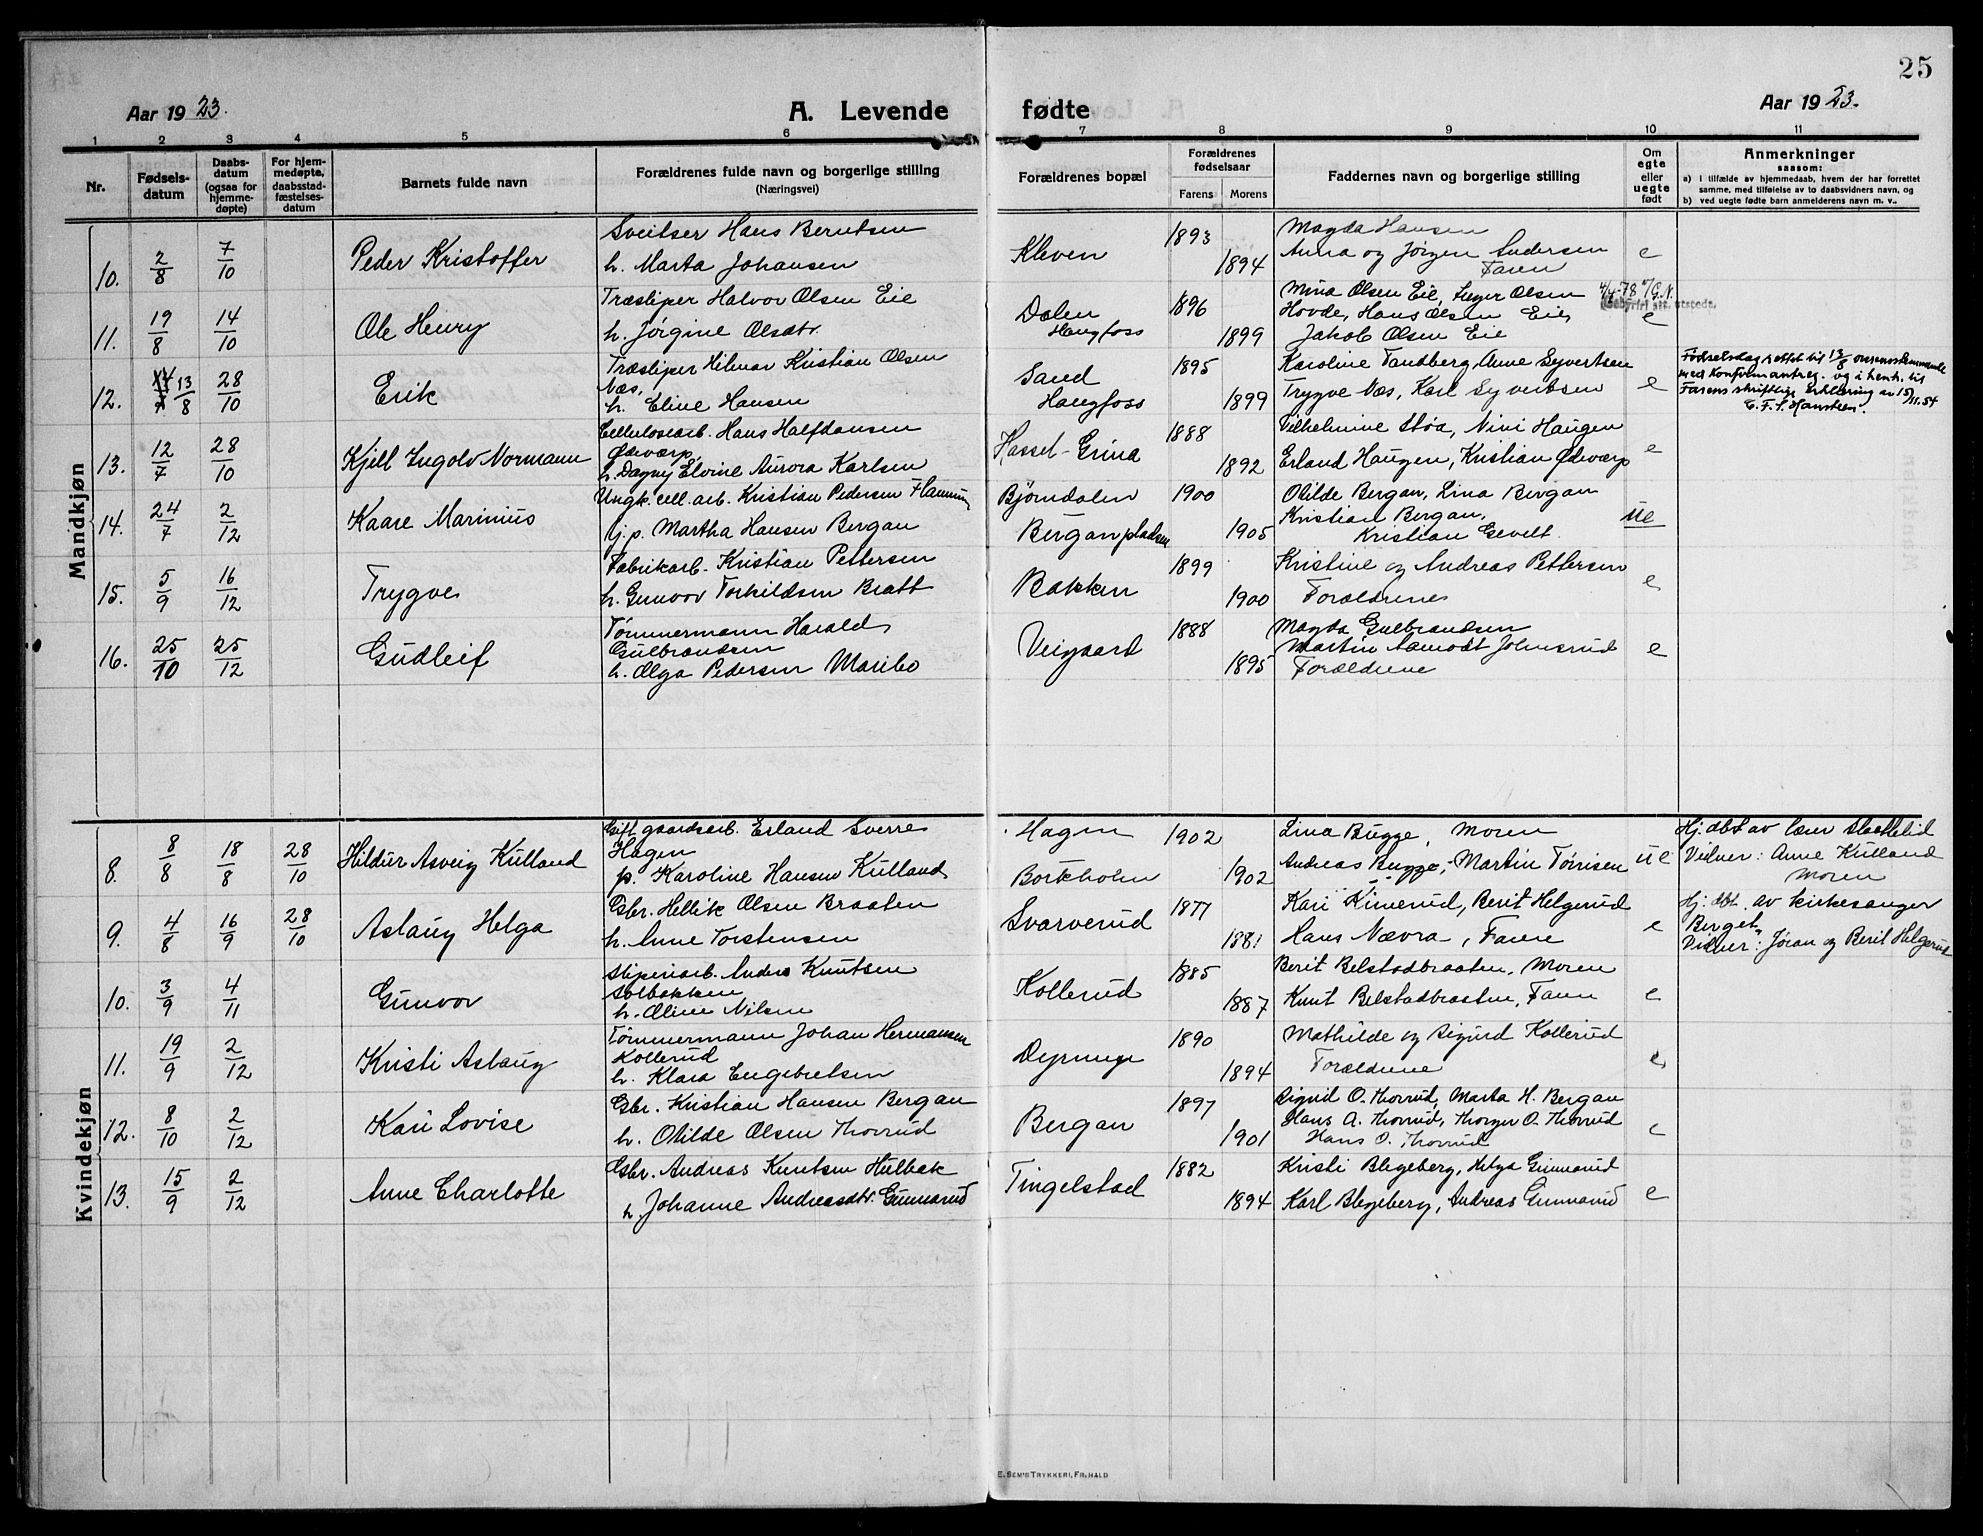 25
Aar 1923. A. Levende fødte Aar 1923.
1 2 3 4 5 6 7 8 9 10 11
Nr.
Fødselsdatum
Daabsdatum (ogsaa for hjemmedøpte)
For hjemmedøpte, daabsstadfæstelsesdatum
Barnets fulde navn
Forældrenes fulde navn og borgerlige stilling
(Næringsvei)
Forældrenes bopæl
Forældrenes fødselsaar
Farens Morens
Faddernes navn og borgerlige stilling
Om egte eller uegte født
Anmerkninger
saasom:
a) I tilfælde av hjemmedaab, hvem der har forrettet samme, med tilføielse av to daabsvidners navn, og
b) ved uegte fødte barn anmelderens navn m. v..
Mandkjøn
10. 2/8 7/10 Peder Kristoffer
Sveitser Hans Berntsen
h. Marta Johansen
Kleven 1893 1894
Magda Hansen
Anna og Jørgen Andersen
Faren
e
11. 19/8 14/10 Ole Henry
Træsliper Halvor Olsen Eie
h. Jørgine Olsdtr.
Dalen
Haugfoss
1896 1899
Mina Olsen Eie, Olsen
Hovde, Hans Olsen Eie,
Jakob Olsen Eie
e
4/4-78
12. 13/8 28/10 Erik
Træsliper Hilmar Kristian Olsen
Næs,
h. Eline Hansen
Sand
Haugfoss
1895 1899
Karoline Tandberg, Anne Syvertsen
Trygve Næs, Karl Syvertsen
e
Fødselsdag rettet til 13/8 overensstemmende
med Konfirmantreg. og i henh. til
Farens skriftlige Erklæring av 15/11.54
13. 12/7 28/10 Kjell Ingolv Normann
Cellulosearb. Hans Halfdansen
Ødeværp,
h. Dagny Elvine Aurora Karlsen
Hassel-Grina 1888 1892
Vilhelmine Støa, Nini Haugen
Erland Haugen, Kristian Ødeværp
e
14. 24/7 2/12 Kaare Marinius
Ungk. cell. arb. Kristian Pedersen
p. Martha Hansen Bergan
Bjørndalen
Berganpladsen
1900 1905
Otilde Bergan, Lina Bergan
Kristian Bergan,
Kristian Gevelt.
ue
15. 5/9 16/12 Trygve
Fabrikarb. Kristian Pettersen
h. Gunvor Torhildsen Bratt
Bakken 1899 1900
Kristine og Andreas Pettersen
Forældrene
e
16. 25/10 25/12 Gudleif
Tømmermann Harald
Gulbrandsen
h. Olga Pedersen Maribo
Veigaard 1888 1895
Magda Gulbrandsen
Martin Aamodt Johnsrud
Forældrene
e
Kvindekjøn
8. 8/8 18/8 28/10 Hildur Asveig Kulland
Gift gaardsarb. Erland Sverre
Hagen
p. Karoline Hansen Kulland
Hagen
Borkholm
1902 1902
Lina Bugge, Moren
Andreas Bugge, Martin Tønisen
ue
Hj. døbt av lærer Slettelid
Vidner: Anne Kulland
Moren
9. 4/8 16/9 28/10 Aslaug Helga
Gbr. Hellik Olsen Braaten
h. Anne Torstensen
Svarverud 1877 1881
Kari Kinerud, Berit Helgerud
Hans Nævra, Faren
e
Hj. døbt. av kirkesanger
Berget,
Vidner: Jøran og Berit Helgerud
10. 3/9 4/11 Gunvor
Sliperiarb. Anders Knutsen
Solbakken
h. Oline Nilsen
Kollerud 1885 1887
Berit Belstadbraaten, Moren
Knut Belstadbraaten, Faren
e
11. 19/9 2/12 Kristi Aslaug
Tømmermann Johan Hermansen
Kollerud
h. Klara Engebretsen
Dyrunge 1890 1894
Mathilde og Sigurd Kollerud
Forældrene
e
12. 8/10 2/12 Kari Lovise
Gbr. Kristian Hansen Bergan
h. Otilde Olsen Thorrud
Bergan 1897 1901
Sigrid O. Thorrud, Marta H. Bergan
Hans A. Thorrud, Thorger O. Thorrud
Hans O. Thorrud
e
13. 15/9 2/12 Anne Charlotte
Gbr. Andreas Knutsen Hulbak
h. Johanne Andreasdtr. Gunnarud
Tingelstad 1882 1894
Kristi Blegeberg, Helga Gunnarud
Karl Blegeberg, Andreas Gunnarud
e
E. SEM'S TRYKKERI, FR.HALD